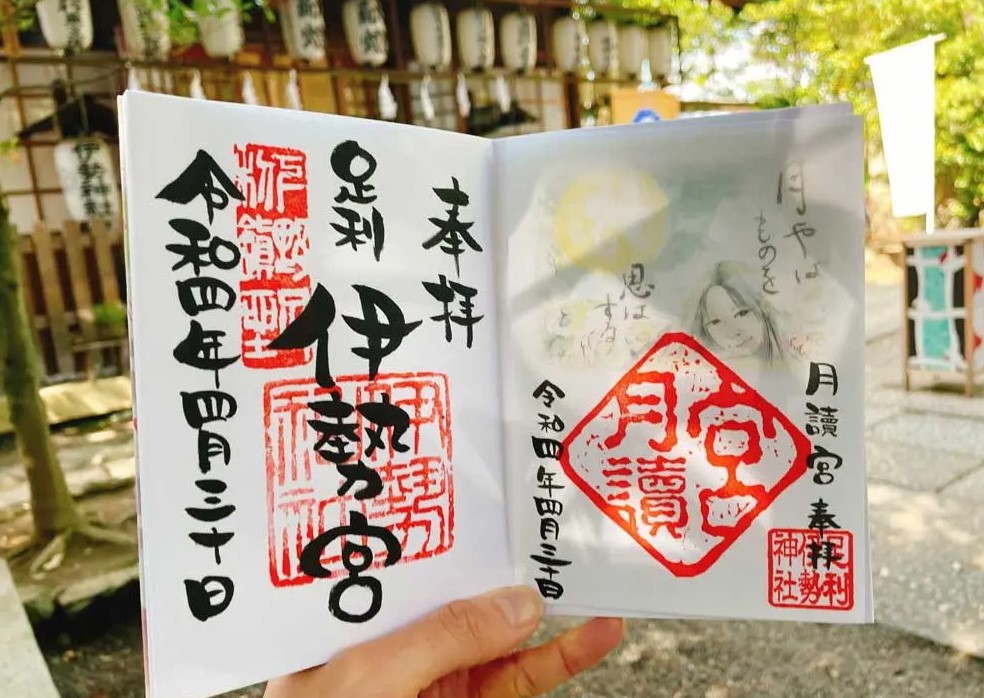 月やは
ものを
思は
する
月讀宮 奉拝
足利
伊勢
神社
月讀
宮
令和四年四月三十日
奉拝
足利
伊勢宮
伊勢
神社
令和四年四月三十日
伊勢神社